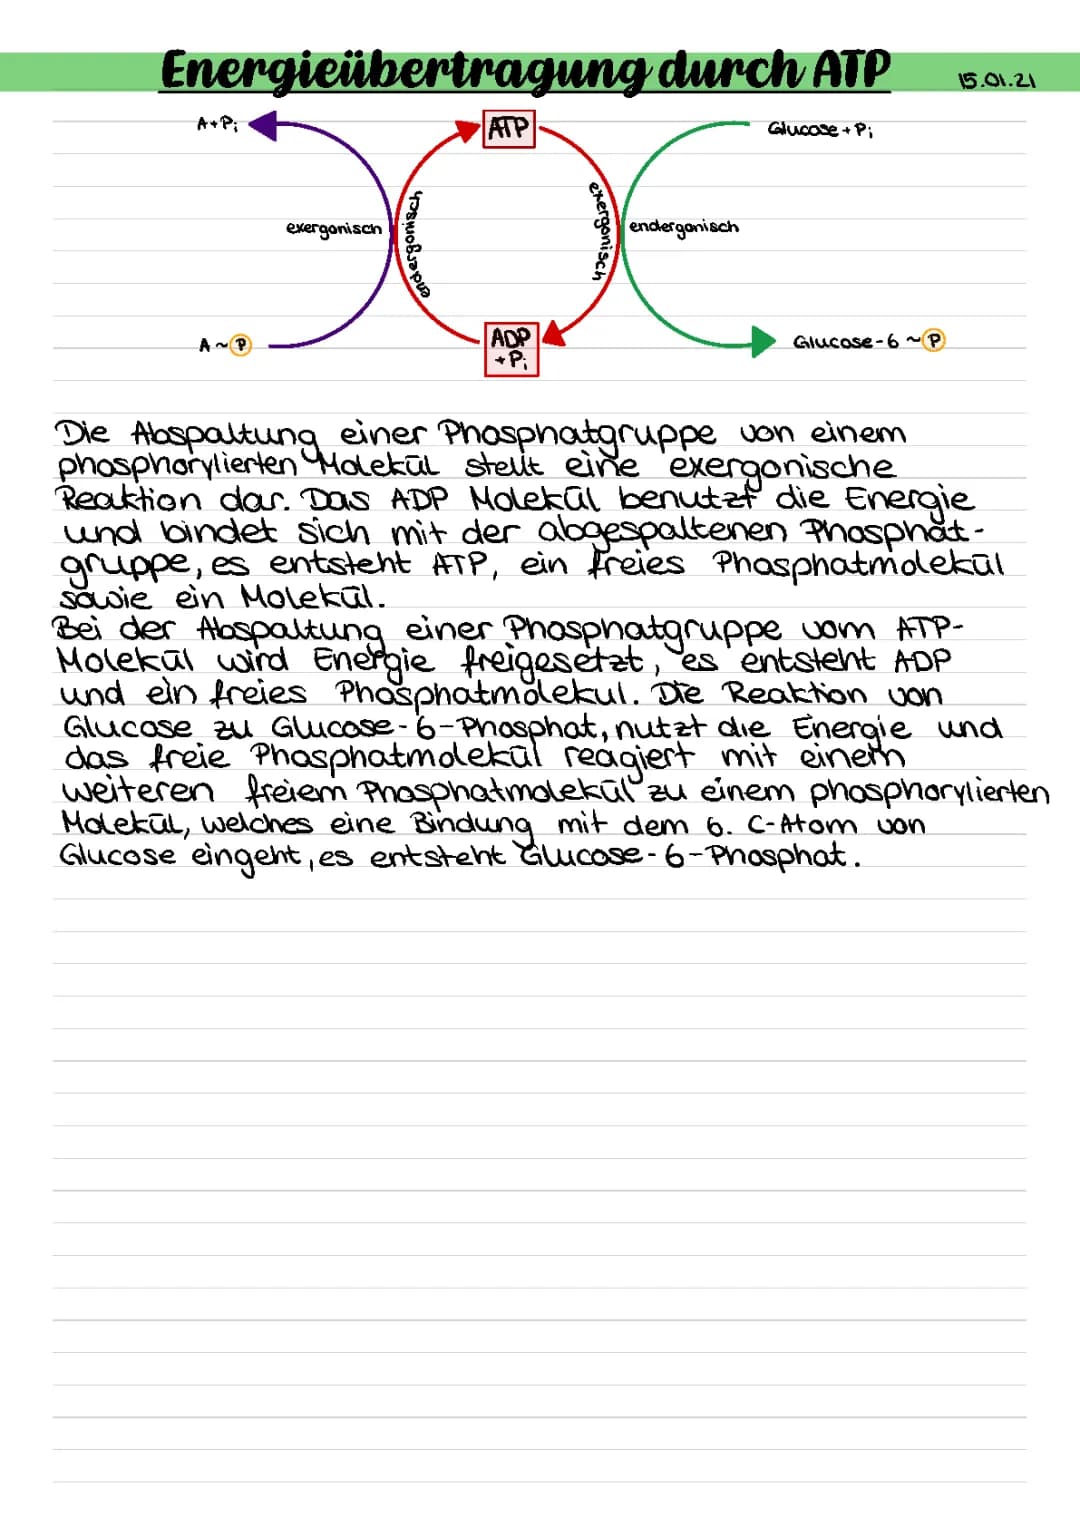 Energieübertragung durch ATP
15.01.21
A+Pi
ATP
Glucose + Pi
exergonisch
endergonisch
exergonisch
endergonisch
A ~ P
ADP
+ Pi
Glucose-6 ~ P
Die Abspaltung einer Phosphatgruppe von einem
phosphorylierten Molekül stellt eine exergonische
Reaktion dar. Das ADP Molekül benutzt die Energie
und bindet sich mit der abgespaltenen Phosphat-
gruppe, es entsteht ATP, ein freies Phosphatmolekül
sowie ein Molekül.
Bei der Abspaltung einer Phosphatgruppe vom ATP-
Molekül wird Energie freigesetzt, es entsteht ADP
und ein freies Phosphatmolekul. Die Reaktion von
Glucose zu Glucose-6-Phosphat, nutzt die Energie und
das freie Phosphatmolekül reagiert mit einem
weiteren freiem Phosphatmolekül zu einem phosphorylierten
Molekül, welches eine Bindung mit dem 6. C-Atom von
Glucose eingeht, es entsteht Glucose-6-Phosphat.